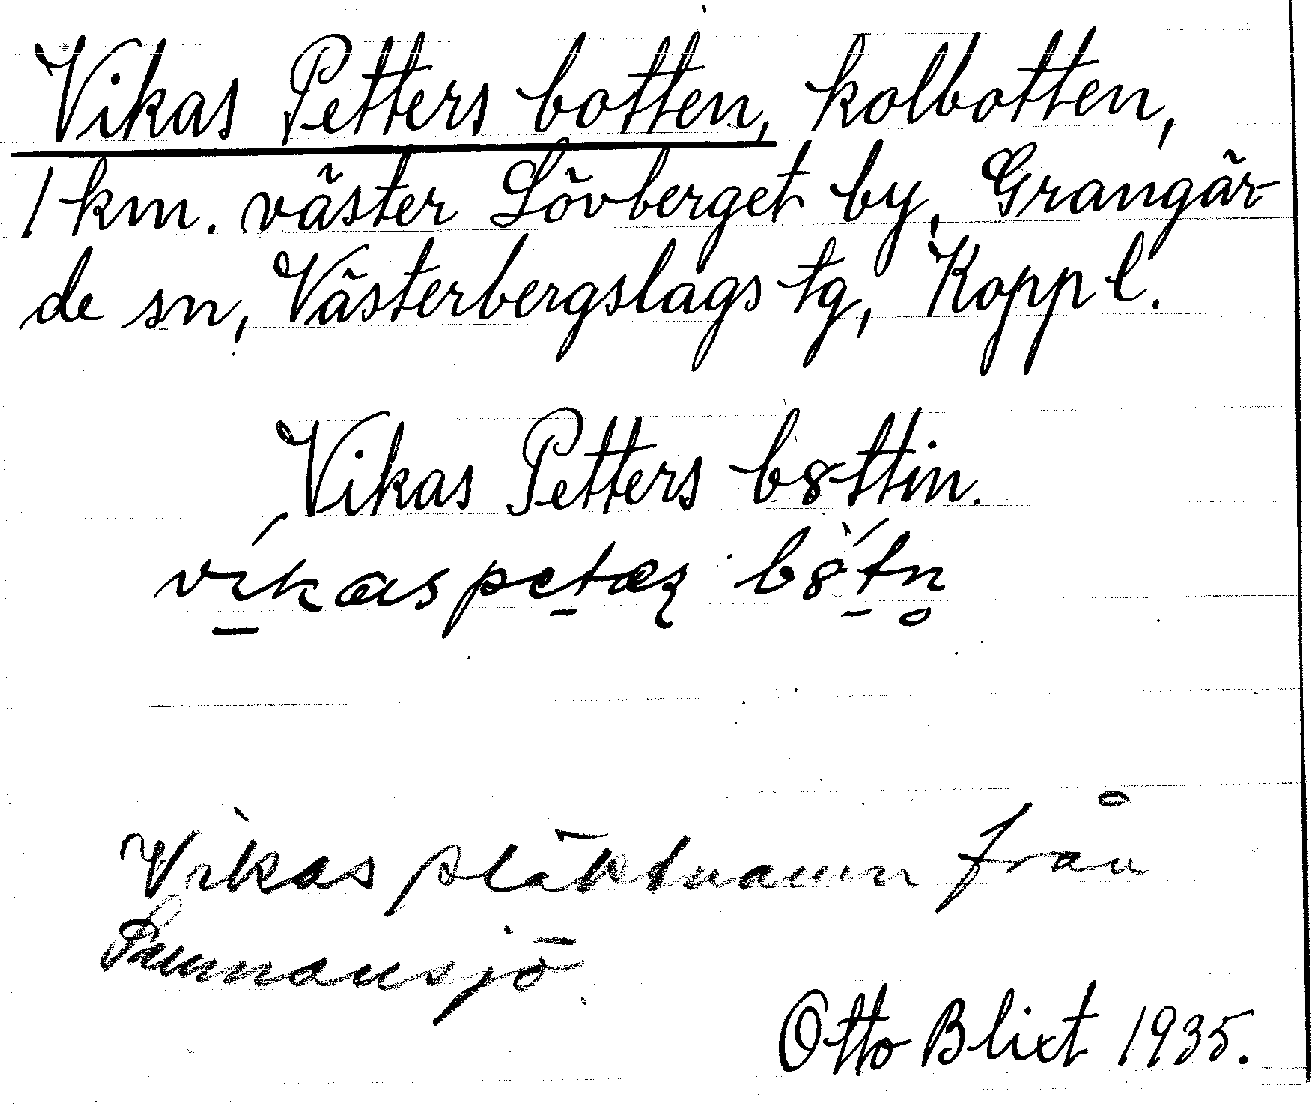 Vikas Petters botten, kolbotten,
1 km. väster Lövberget by, Grangär-
de sn, Västerbergslags tg, Kopp l.
Vikas Petters b8ttin.
Vikas släktnamn från
Sunnansjö.
Otto Blixt 1935.